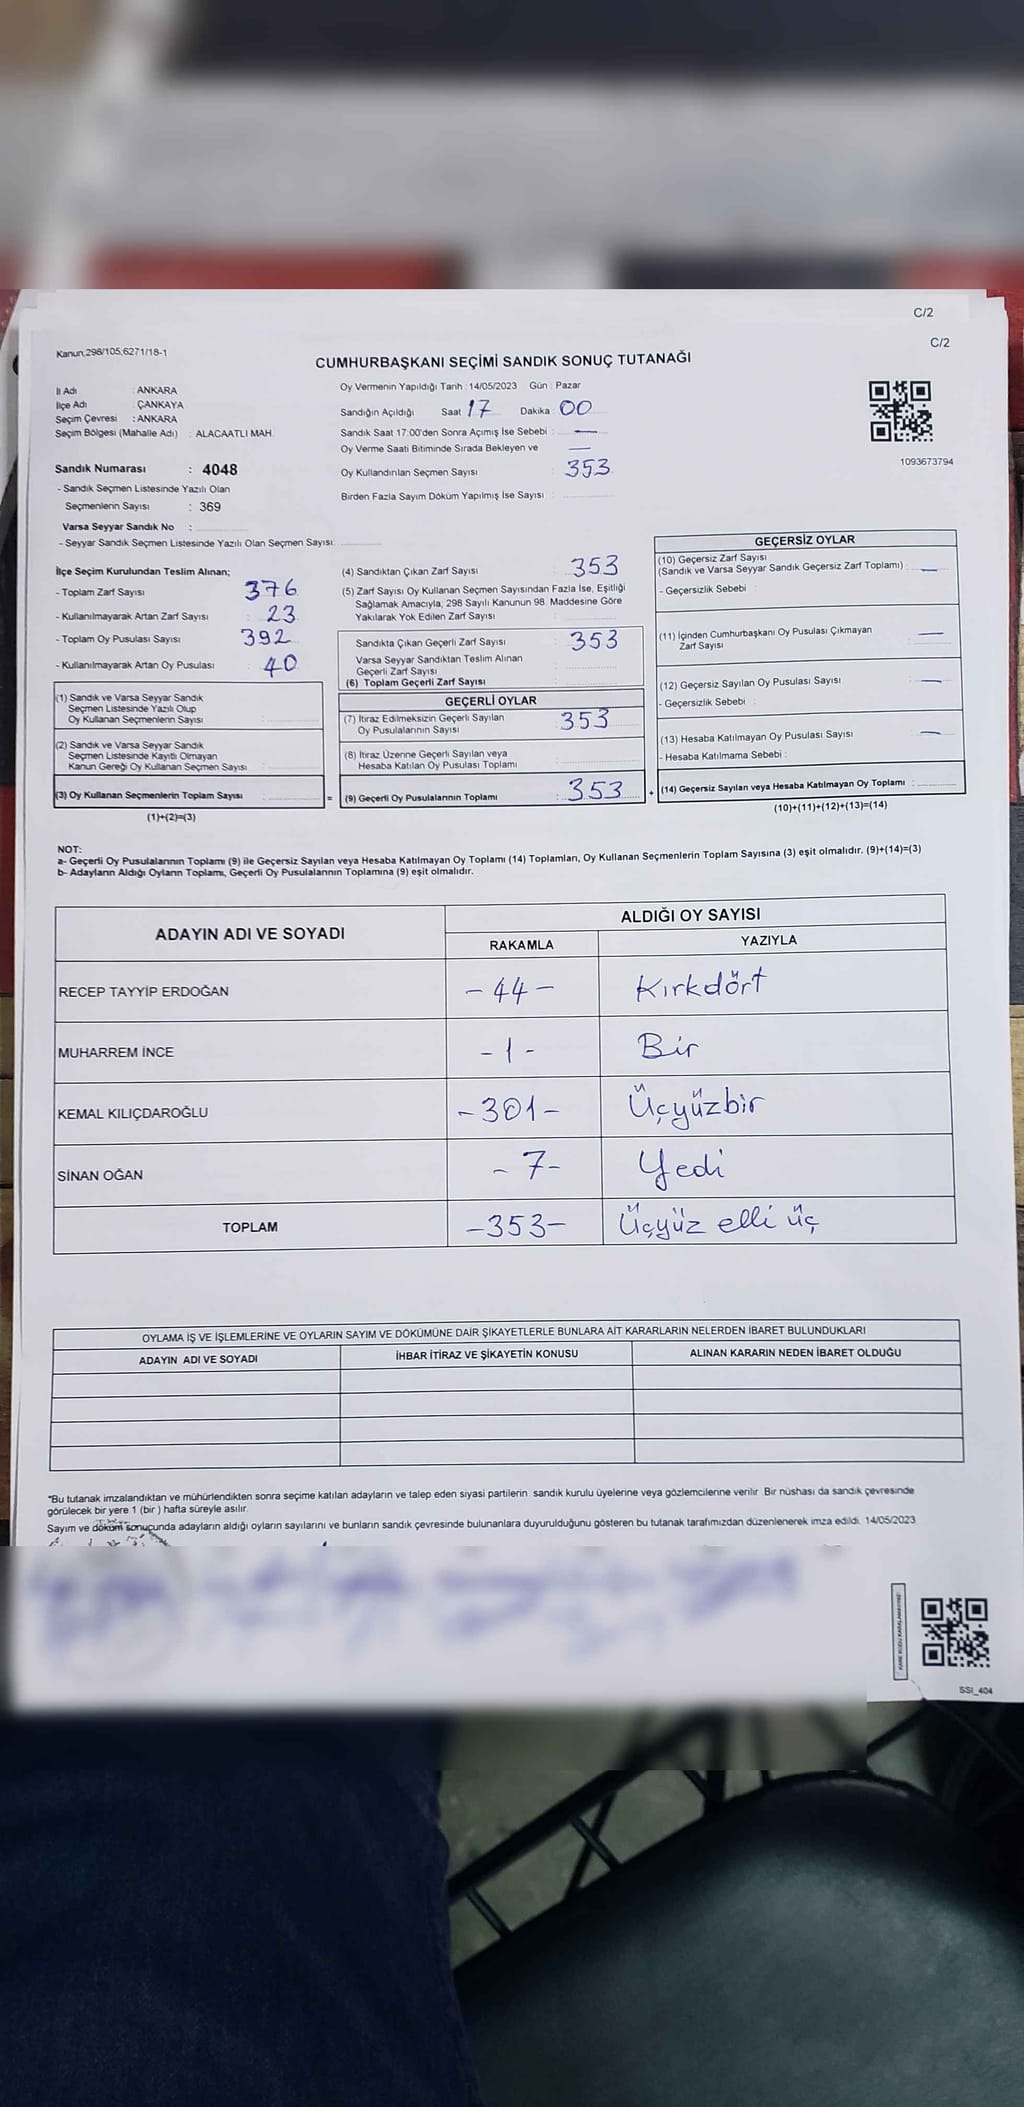 C/2
C/2
Kanun;298/105;6271/18-1
CUMHURBAŞKANI SEÇİMİ SANDIK SONUÇ TUTANAĞI
İl Adı : ANKARA
İlçe Adı : ÇANKAYA
Seçim Çevresi : ANKARA
Seçim Bölgesi (Mahalle Adı) : ALACAATLI MAH.
Sandık Numarası : 4048
- Sandık Seçmen Listesinde Yazılı Olan
Seçmenlerin Sayısı : 369
Varsa Seyyar Sandık No :
- Seyyar Sandık Seçmen Listesinde Yazılı Olan Seçmen Sayısı:
Oy Vermenin Yapıldığı Tarih : 14/05/2023 Gün : Pazar
Sandığın Açıldığı Saat 17 Dakika : 00
Sandık Saat 17:00'den Sonra Açımış İse Sebebi : —
Oy Verme Saati Bitiminde Sırada Bekleyen ve —
Oy Kullandırılan Seçmen Sayısı 353
Birden Fazla Sayım Döküm Yapılmış İse Sayısı :
1093673794
İlçe Seçim Kurulundan Teslim Alınan;
- Toplam Zarf Sayısı : 376
- Kullanılmayarak Artan Zarf Sayısı : 23
- Toplam Oy Pusulası Sayısı : 392
- Kullanılmayarak Artan Oy Pusulası : 40
(1) Sandık ve Varsa Seyyar Sandık
Seçmen Listesinde Yazılı Olup
Oy Kullanan Seçmenlerin Sayısı :
(2) Sandık ve Varsa Seyyar Sandık
Seçmen Listesinde Kayıtlı Olmayan
Kanun Gereği Oy Kullanan Seçmen Sayısı :
(3) Oy Kullanan Seçmenlerin Toplam Sayısı :
(1)+(2)=(3)
(4) Sandıktan Çıkan Zarf Sayısı : 353
(5) Zarf Sayısı Oy Kullanan Seçmen Sayısından Fazla İse, Eşitliği
Sağlamak Amacıyla; 298 Sayılı Kanunun 98. Maddesine Göre
Yakılarak Yok Edilen Zarf Sayısı :
Sandıkta Çıkan Geçerli Zarf Sayısı : 353
Varsa Seyyar Sandıktan Teslim Alınan
Geçerli Zarf Sayısı :
(6) Toplam Geçerli Zarf Sayısı :
GEÇERLİ OYLAR
(7) İtiraz Edilmeksizin Geçerli Sayılan
Oy Pusulalarının Sayısı : 353
(8) İtiraz Üzerine Geçerli Sayılan veya
Hesaba Katılan Oy Pusulası Toplamı :
= (9) Geçerli Oy Pusulalarının Toplamı : 353 +
GEÇERSİZ OYLAR
(10) Geçersiz Zarf Sayısı
(Sandık ve Varsa Seyyar Sandık Geçersiz Zarf Toplamı) : —
- Geçersizlik Sebebi :
(11) İçinden Cumhurbaşkanı Oy Pusulası Çıkmayan
Zarf Sayısı : —
(12) Geçersiz Sayılan Oy Pusulası Sayısı : —
- Geçersizlik Sebebi :
(13) Hesaba Katılmayan Oy Pusulası Sayısı : —
- Hesaba Katılmama Sebebi :
(14) Geçersiz Sayılan veya Hesaba Katılmayan Oy Toplamı :
(10)+(11)+(12)+(13)=(14)
NOT:
a- Geçerli Oy Pusulalarının Toplamı (9) ile Geçersiz Sayılan veya Hesaba Katılmayan Oy Toplamı (14) Toplamları, Oy Kullanan Seçmenlerin Toplam Sayısına (3) eşit olmalıdır. (9)+(14)=(3)
b- Adayların Aldığı Oyların Toplamı, Geçerli Oy Pusulalarının Toplamına (9) eşit olmalıdır.
ADAYIN ADI VE SOYADI ALDIĞI OY SAYISI
RAKAMLA YAZIYLA
RECEP TAYYİP ERDOĞAN - 44 - Kırkdört
MUHARREM İNCE - 1 - Bir
KEMAL KILIÇDAROĞLU - 301 - Üçyüzbir
SİNAN OĞAN - 7 - Yedi
TOPLAM - 353 - Üçyüz elli üç
OYLAMA İŞ VE İŞLEMLERİNE VE OYLARIN SAYIM VE DÖKÜMÜNE DAİR ŞİKAYETLERLE BUNLARA AİT KARARLARIN NELERDEN İBARET BULUNDUKLARI
ADAYIN ADI VE SOYADI İHBAR İTİRAZ VE ŞİKAYETİN KONUSU ALINAN KARARIN NEDEN İBARET OLDUĞU
*Bu tutanak imzalandıktan ve mühürlendikten sonra seçime katılan adayların ve talep eden siyasi partilerin sandık kurulu üyelerine veya gözlemcilerine verilir. Bir nüshası da sandık çevresinde
görülecek bir yere 1 (bir ) hafta süreyle asılır.
Sayım ve döküm sonucunda adayların aldığı oyların sayılarını ve bunların sandık çevresinde bulunanlara duyurulduğunu gösteren bu tutanak tarafımızdan düzenlenerek imza edildi. 14/05/2023
SSI_404